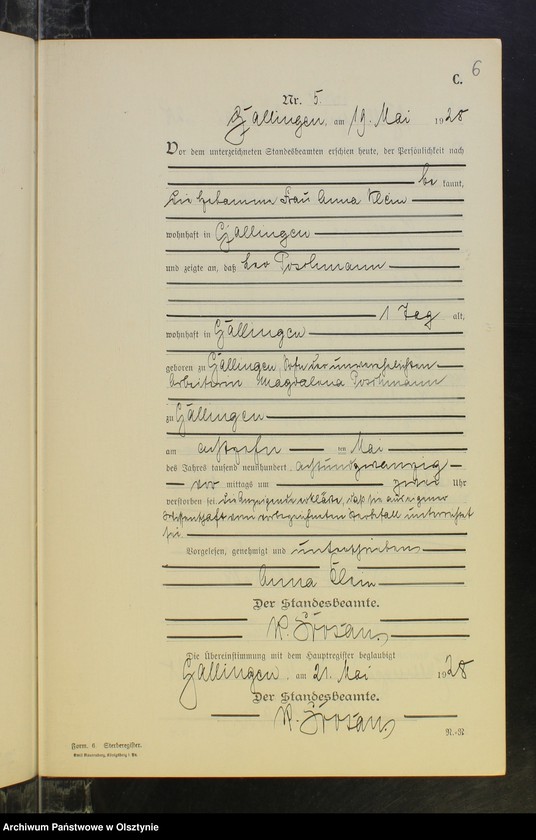 6
C.
Nr. 5.
Gallingen, am 19. Mai 1928
Vor dem unterzeichneten Standesbeamten erschien heute, der Persönlichkeit nach
be kannt,
die Hebamme Frau Anna Klein
wohnhaft in Gallingen
und zeigte an, daß Leo Poschmann
1 Tag alt,
wohnhaft in Gallingen
geboren zu Gallingen, Sohn der unverehelichten
Arbeiterin Magdalena Poschmann
zu Gallingen
am achtzehn ten Mai
des Jahres tausend neunhundert achtundzwanzig
vor mittags um Uhr
verstorben sei. Die Anzeigende erklärte, daß sie aus eigener
Wissenschaft vom vorbezeichneten Sterbefall unterrichtet
sei.
Vorgelesen, genehmigt und unterschrieben
Anna Klein
Der Standesbeamte.
Die Übereinstimmung mit dem Hauptregister beglaubigt
Gallingen, am 21. Mai 1928
Der Standesbeamte.
Form. 6. Sterberegister.
R.-R
Archiwum Państwowe w Olsztynie